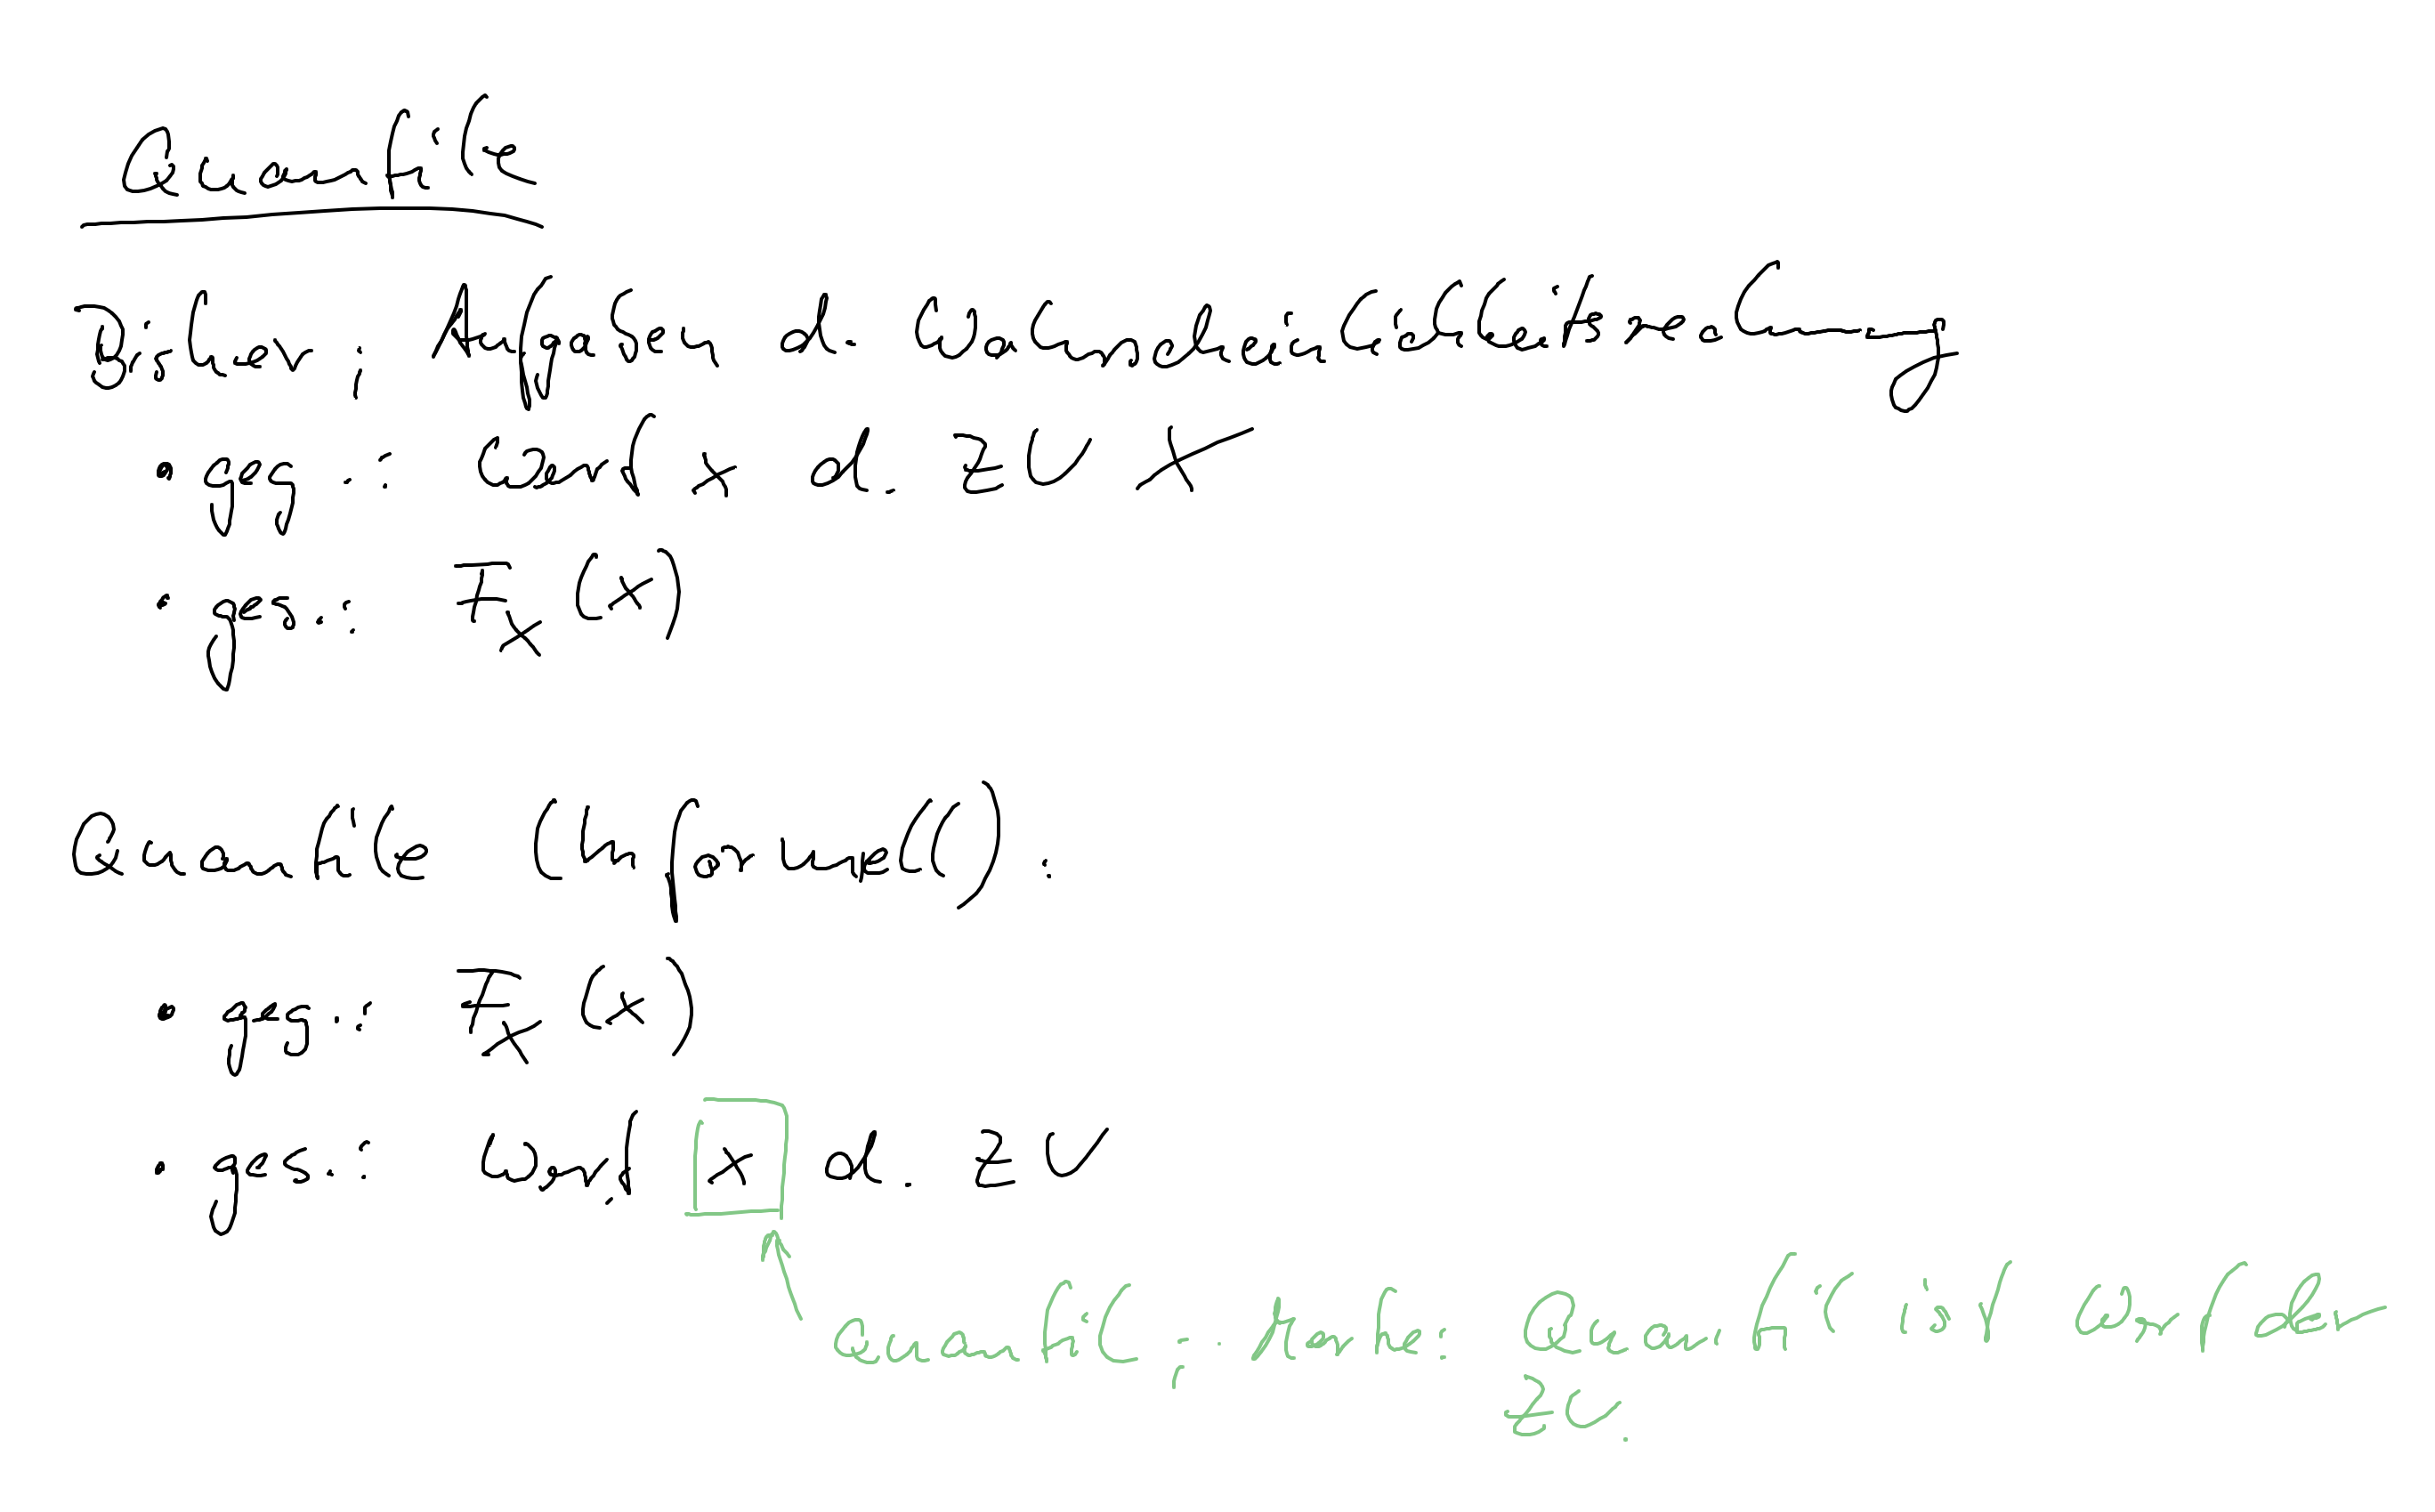 Quantile
Bisher: Aufgaben d. Wahrscheinlichkeitsrechnung
• geg.: Wert x d. ZV X
• ges.: F_X(x)
Quantile (Informell):
• geg.: F_X(x)
• ges.: Wert x d. ZV
Quantil; : Quantil ist Wert der
ZV.